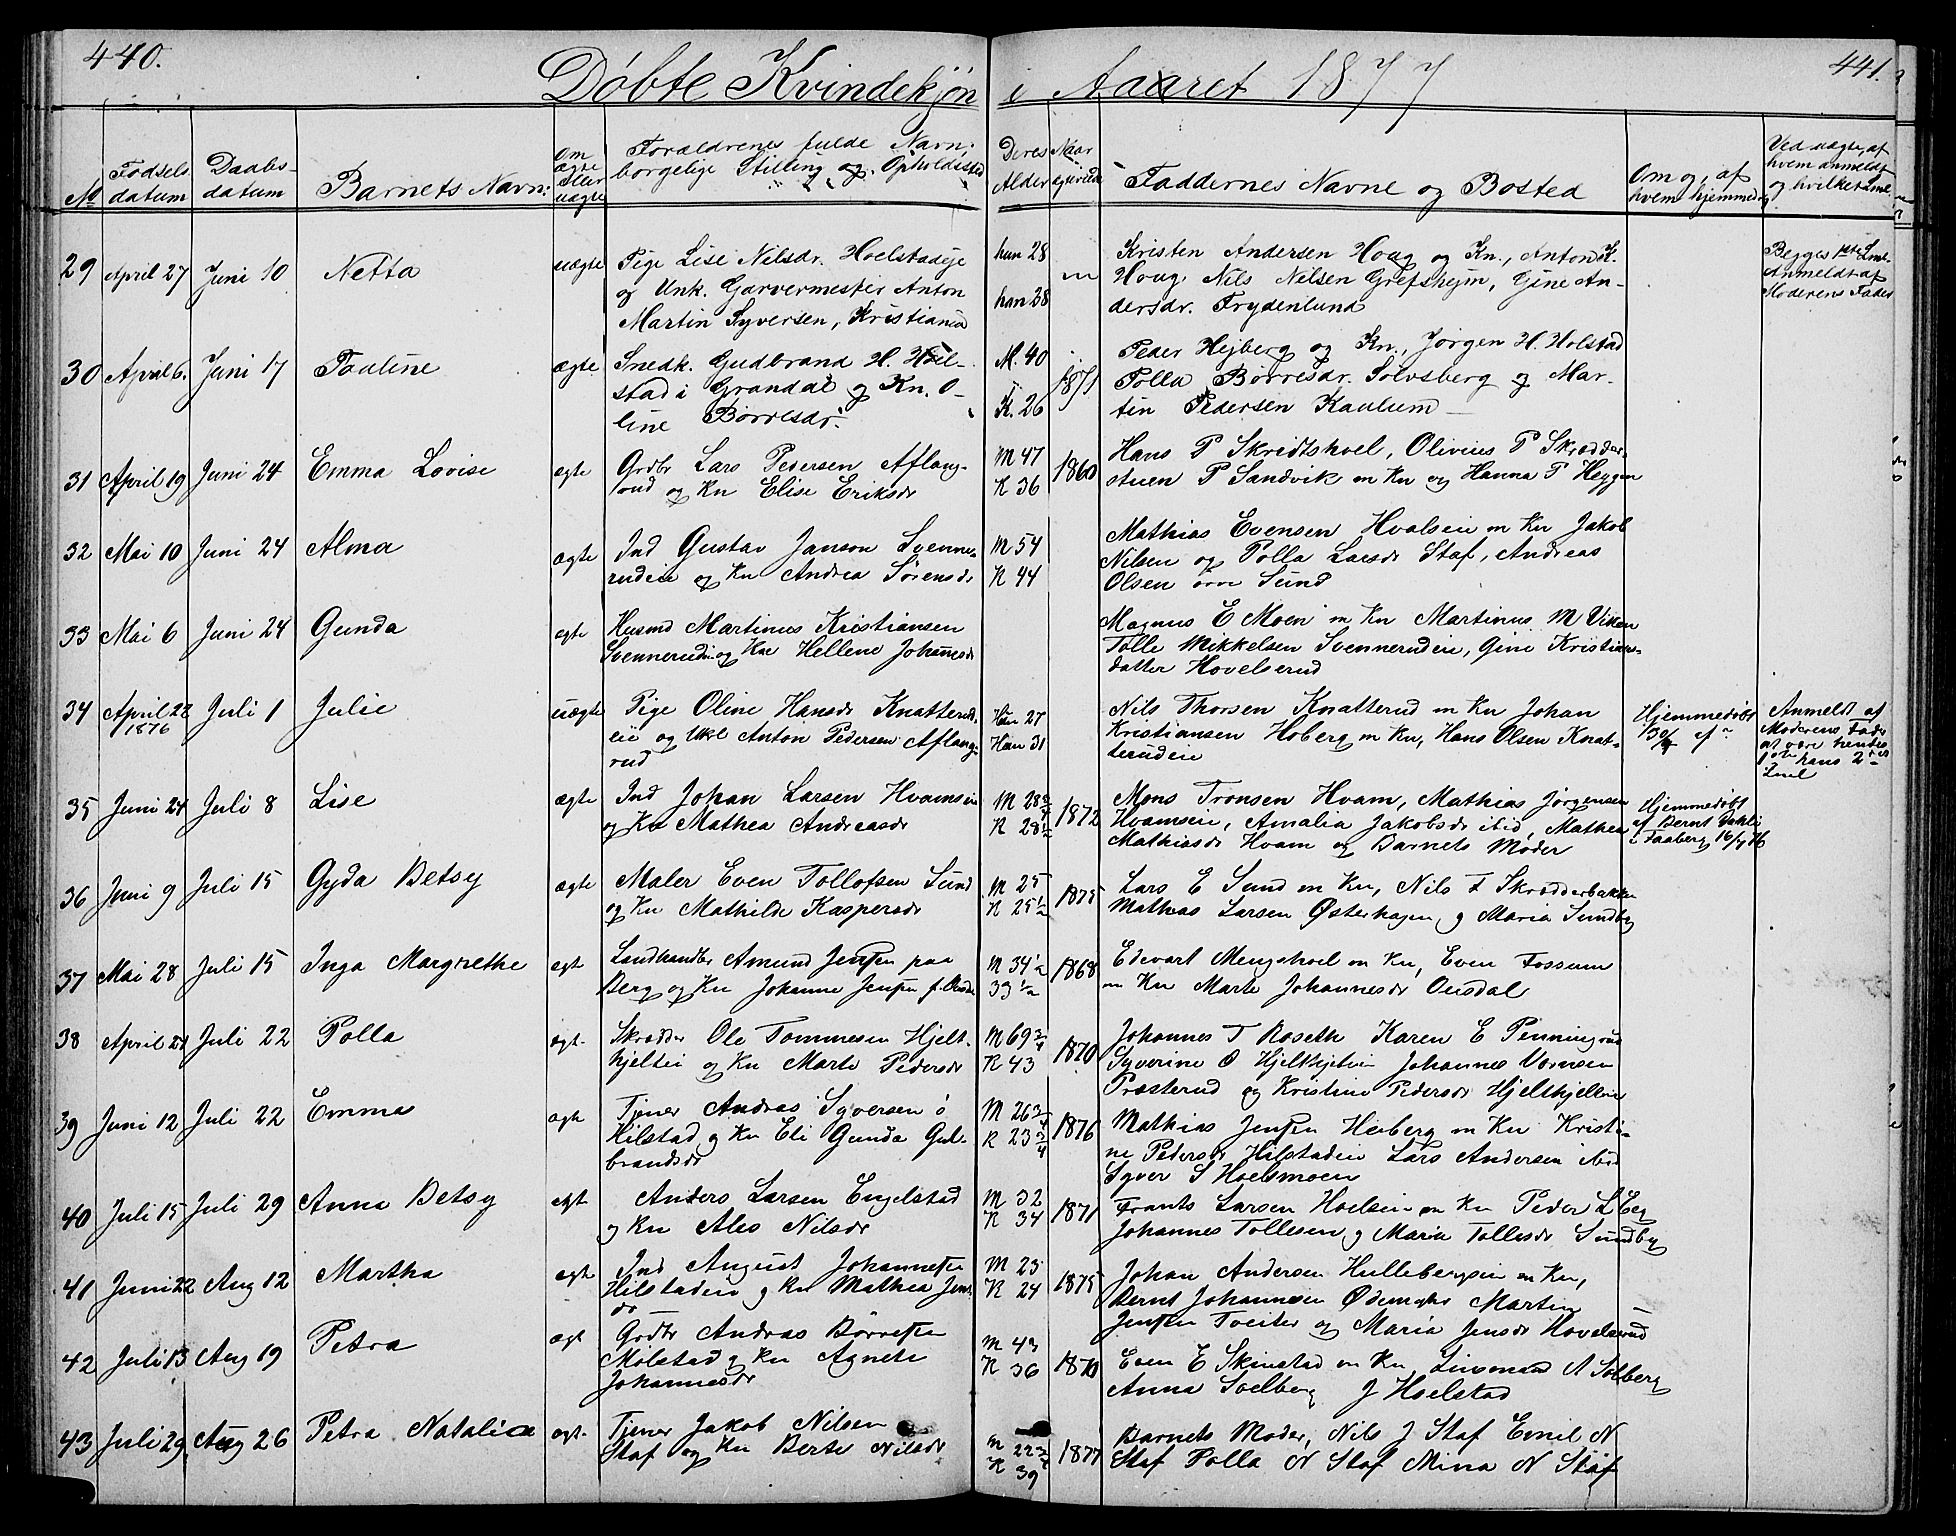 440.
Döbte Kvindekjøn i Aaaret 1877
441.
No
Födsels datum
Daabs- datum
Barnets Navn:
Om ægte eller uægte
Forældrenes fulde Navn, borgelige Stilling og Opholdssted
Deres Alder
Naar
Faddernes Navne og Bosted
Om og af hvem hjemmed
Ved uægte, af hvem anmeldt
29 April 27 Juni 10 Netta uægte
Pige Lise Nilsdr. Hoelstadeje
og Unk. Garvermester Anton
Martin Syversen, Kristiania
hun 28
han 38
Kristen Andersen Houg og Kn., Anton K.
Houg, Nils Nilsen Grefsheim, Gine An-
dersdr. Frydenlund
Begges 1ste Lm.
Anmeldt af
Moderens Fader
30 April 6. Juni 17 Pauline ægte
Snedk. Gudbrand H. Hoel-
stad i Grandal og Kn. O-
line Börresdr.
M. 40
K. 26
1871
Peder Hejberg og Kn., Jörgen H. Holstad
Polla Börresdr. Solvsberg og Mar-
tin Pedersen Kaulum
31 April 19 Juni 24 Emma Lovise ægte
Grdbr Lars Pedersen Aflang-
rud og Kn Elise Eriksdr
M 47
K 36
1860
Hans P Skridtshoel, Olivius P Skrædder-
stuen P Sandvik m Kn og Hanna P Heggen
32 Mai 10 Juni 24 Alma ægte
Ind Gustav Janson Svenne-
rudeie og Kn Andrea Sörensdr
M 54
K 44
Mathias Evensen Hvalseie m Kn Jakob
Nilsen og Polla Larsdr Staf, Andreas
Olsen övre Sund
33 Mai 6 Juni 24 Gunda ægte
Husmd Martinus Kristiansen
Svennerudei og Kne Hellene Johansdr
Magnus E Moen m Kn Martinus M Viken
Tolle Mikkelsen Svennerudeie, Gine Kristians-
datter Hovelsrud
34 April 22 1876 Juli 1 Julie uægte
Pige Oline Hansdr Knatterud-
eie og Ukl Anton Pedersen Aflang-
rud
Hun 27
Han 31
Nils Thorsen Knatterud m Kn Johan
Kristiansen Hoberg m Kn, Hans Olsen Knat-
terudeie
Hjemmedöbt
Anmeldt af
Moderens Fader
35 Juni 24 Juli 8 Lise ægte
Ind Johan Larsen Hvamseie
og Kn Mathea Andreasdr
M 28 3/4
K 28 1/2
1872
Mons Tronsen Hvam, Mathias Jörgensen
Hvamseie, Amalia Jakobsdr ibid, Mathea
Mathiasdr Hvam og Barnets Moder
Hjemmedöbt
af Bernt Dahli
i Faaberg 16/7 76
36 Juni 9 Juli 15 Gyda Betsy ægte
Maler Even Tollofsen Sund
og Kn Mathilde Kaspersdr
M 25
K 25 1/2
1875
Lars E Sund m Kn, Nils T Skrædderbakken
Mathias Larsen Østerhagen, og Maria Sundby
37 Mai 28 Juli 15 Inga Margrethe ægt
Landhandler Amund Jensen paa
Berg og Kn Johanne Jensen
M 34 1/2
33 1/2
1868
Edevart Mengshoel m Kn, Even Fossum
m Kn Marte Johannesdr Ousdal
38 April 21 Juli 22 Polla ægt.
Skrædder Ole Tommesen Hjelt-
hjeltei og Kn Marte Pedersdr
M 69 3/4
K 43
1870
Johannes T Roseth Karen E Penningrud
Syverine O Hjelthjelteie Johannes
Præsterud og Kristine Pedersdr Hjelthjelleie
39 Juni 12 Juli 22 Emma ægte
Tjener Andreas Syversen
Hilstad og Kn Eli Gunda Gul-
brandsdr
M 26 3/4
K 23 3/4
1876
Mathias Jensen Heiberg m Kn Kristi-
ne Pedersdr Hilstadeie Lars Andersen ibid
Syver S Hoelsmoen
40 Juli 15 Juli 29 Anna Betsy ægt
Anders Larsen Engelstad
og Kn Ales Nilsdr
M 32
K 34
1871
Frants Larsen Hoelseie m Kn Peder L Eeg
Johannes Tollesen og Maria Tollesdr Sundby
41 Juni 22 Aug 12 Martha ægt
Ind August Johannesen
Hilstadeie og Kn Mathea Jens-
dr
M 25
K 24
1875
Johan Andersen Hullebergseie m Kn,
Bernt Johannesen Martin
Jensen Tveiter og Maria Jensdr Hovelsrud
42 Juli 13 Aug 19 Petra ægt
Grdbr Andreas Börresen
Molstad og Kn Agnete
Johannesdr
M 43
K 36
1870
Even E Skinstad m Kn A Solberg
Anna Soelberg J Hoelstad
43 Juli 29 Aug 26 Petra Natalia ægt.
Tjener Jakob Nilsen
Staf og Kn Berte Nilsdr
M 22 3/4
K 39
1877
Barnets Moder, Nils J Staf Emil N
Staf Polla N Staf Mina N Staf